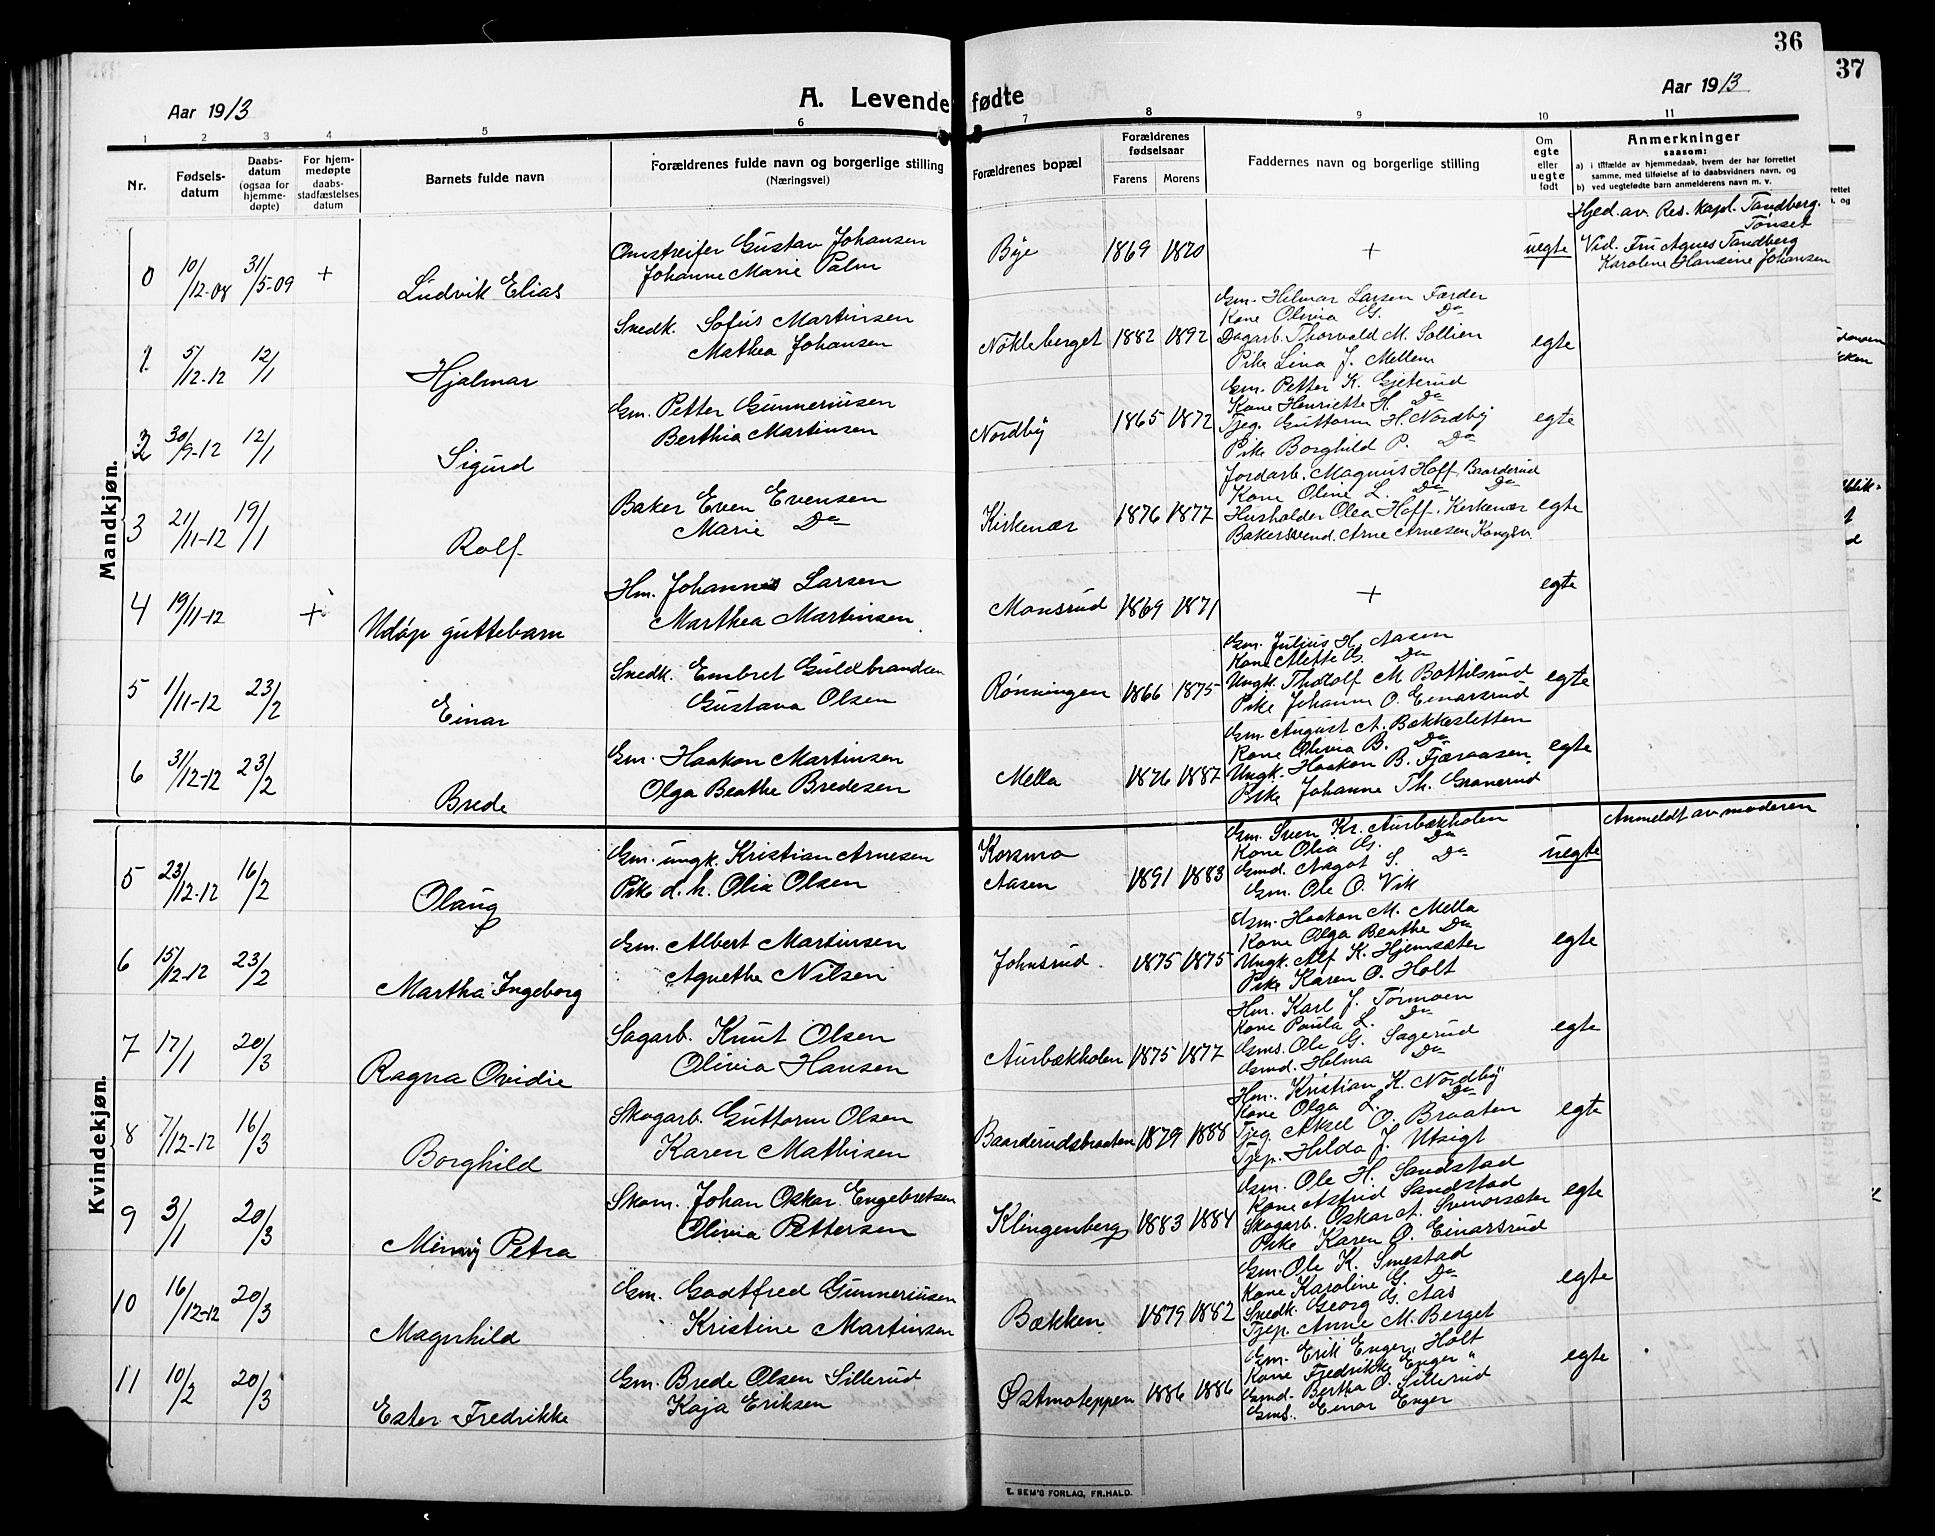 36
37
Aar 1913
A. Levende fødte
Aar 1913
1 2 3 4 5 6 7 8 9 10 11
Nr.
Fødsels-
datum
Daabs-
datum
(ogsaa for
hjemme-
døpte)
For hjem-
medøpte
daabs-
stadfæstelses
datum
Barnets fulde navn
Forældrenes fulde navn og borgerlige stilling
(Næringsvei)
Forældrenes bopæl
Forældrenes
fødselsaar
Farens Morens
Faddernes navn og borgerlige stilling
Om
egte
eller
uegte
født
Anmerkninger
saasom:
a) i tilfælde av hjemmedaab, hvem der har forrettet
samme, med tilføielse af to daabsvidners navn, og
b) ved uegtefødte barn anmelderens navn m. v.
Mandkjøn.
0 10/12-08 31/5-09 + Ludvik Elias
Omstreifer Gustav Johansen
Johanne Marie Palm
Bye 1869 1870 + uegte
Hjed. av. Res. Kapl. Tandberg.
Tønset
Vid. Fru Agnes Tandberg
Karoline Hansine Johansen
1 5/12-12 12/1 Hjalmar
Snedk. Sofus Martinsen
Mathea Johansen
Nökleberget 1882 1892
Gm. Helmar Larsen Færder
Kone Olivia G. Do
Dagarb. Thorvald M. Sollien
Pike Lina J. Mellem
egte
2 30/9-12 12/1 Sigurd
Gm. Petter Gunneriusen
Berthia Martinsen
Nordby 1865 1872
Gm. Petter K. Gjeterud
Kone Henriette H. Do
Tjeg. Guttorm H. Nordby
Pike Borghild P. Do
egte
3 21/11-12 19/1 Rolf
Baker Even Evensen
Marie Do
Kirkenær 1876 1877
Jordarb. Magnus Hoff, Baarderud
Kone Oline L. Do Do
Husholder Olea Hoff, Kirkenær
Bakersvend. Arne Arnesen Kongsv.
egte
4 19/11-12 + Udøp guttebarn
Hm. Johannes Larsen
Marthea Martinsen
Monsrud 1869 1871 + egte
5 1/11-12 23/2 Einar
Snedk. Embret Guldbrandsen
Gustava Olsen
Rønningen 1866 1875
Gm. Julius H. Aasen
Kone Mette G. Do
Ungk. Thorolf M Bottilsrud
Pike Johanne O. Einarsrud
egte
6 31/12-12 23/2 Brede
Gm. Haakon Martinsen
Olga Beathe Bredesen
Mella 1876 1887
Gm. August A. Bækkesletten
Kone Olivia B. Do
Ungk. Haakon B. Fjæraasen
Pike Johanne Th. Granerud
egte
Kvindekjøn.
5 23/12-12 16/2 Olaug
Gm. ungk. Kristian Arnesen
Pike d. h. Olia Olsen
Korsmo
Aasen
1891 1883
Gm. Sven Kr. Aurbækholen
Kone Olia G. Do
Gmd. Aagot S. Do
Gm. Ole O. Vik
uegte
Anmeldt av moderen
6 15/12-12 23/2 Martha Ingeborg
Gm. Albert Martinsen
Agnethe Nilsen
Johnsrud. 1875 1875
Gm. Haakon M. Mella
Kone Olga Beathe Do
Ungk. Alf K. Hjemsæter
Pike Karen O. Holt
egte
7 17/1 20/3 Ragna Ovidie
Sagarb. Knut Olsen
Olivia Hansen
Aurbækholen 1875 1877
Hm. Karl J. Tørmoen
Kone Paula L. Do
Gms. Ole G. Sagerud
Gmd. Helma Do
egte
8 7/12-12 16/3 Borghild
Skogarb. Guttorm Olsen
Karen Mathisen
Baarderudsbraaten 1879 1888
Hm. Kristian K. Nordby
Kone Olga L. Do
Tjeg. Aksel O. Braaten
Tjep. Hilda J. Utsigt
egte
9 3/1 20/3 Minny Petra
Skom. Johan Oskar Engebretsen
Olivia Pettersen
Klingenberg 1883 1884
Gm. Ole H. Sandstad
Kone Astrid Sandstad
Skogarb. Oskar A. Svenorsæter
Pike Karen O. Einarsrud
egte
10 16/12-12 20/3 Magnhild
Gm. Godtfred Gunneriusen
Kristine Martinsen
Bækken 1879 1882
Gm. Ole K. Smestad
Kone Karoline G. Do
Snedk. Georg G. Aas
Tjep. Anne M. Berget
egte
11 10/2 20/3 Ester Fredrikke
Gm. Brede Olsen Sillerud
Kaja Eriksen
Østmoteppen 1886 1886
Gm. Erik Enger, Holt
Kone Fredrikke Enger "
Gmd. Bertha O. Sillerud
Gms. Einar Enger
egte
E. SEM'S FORLAG, FR.HALD.